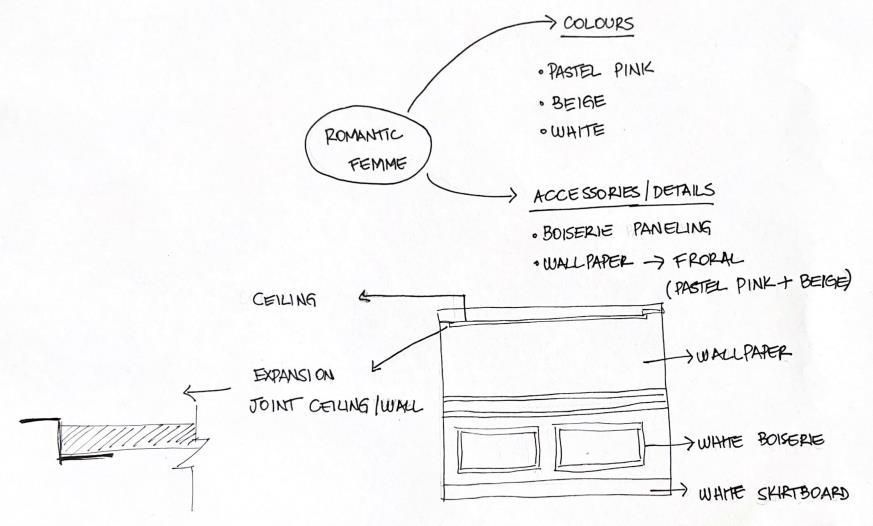 ROMANTIC
FEMME
COLOURS
• PASTEL PINK
• BEIGE
• WHITE
ACCESSORIES/DETAILS
• BOISERIE PANELING
• WALLPAPER → FRORAL
(PASTEL PINK + BEIGE)
CEILING
EXPANSION
JOINT CEILING/WALL
WALLPAPER
WHITE BOISERIE
WHITE SKIRTBOARD